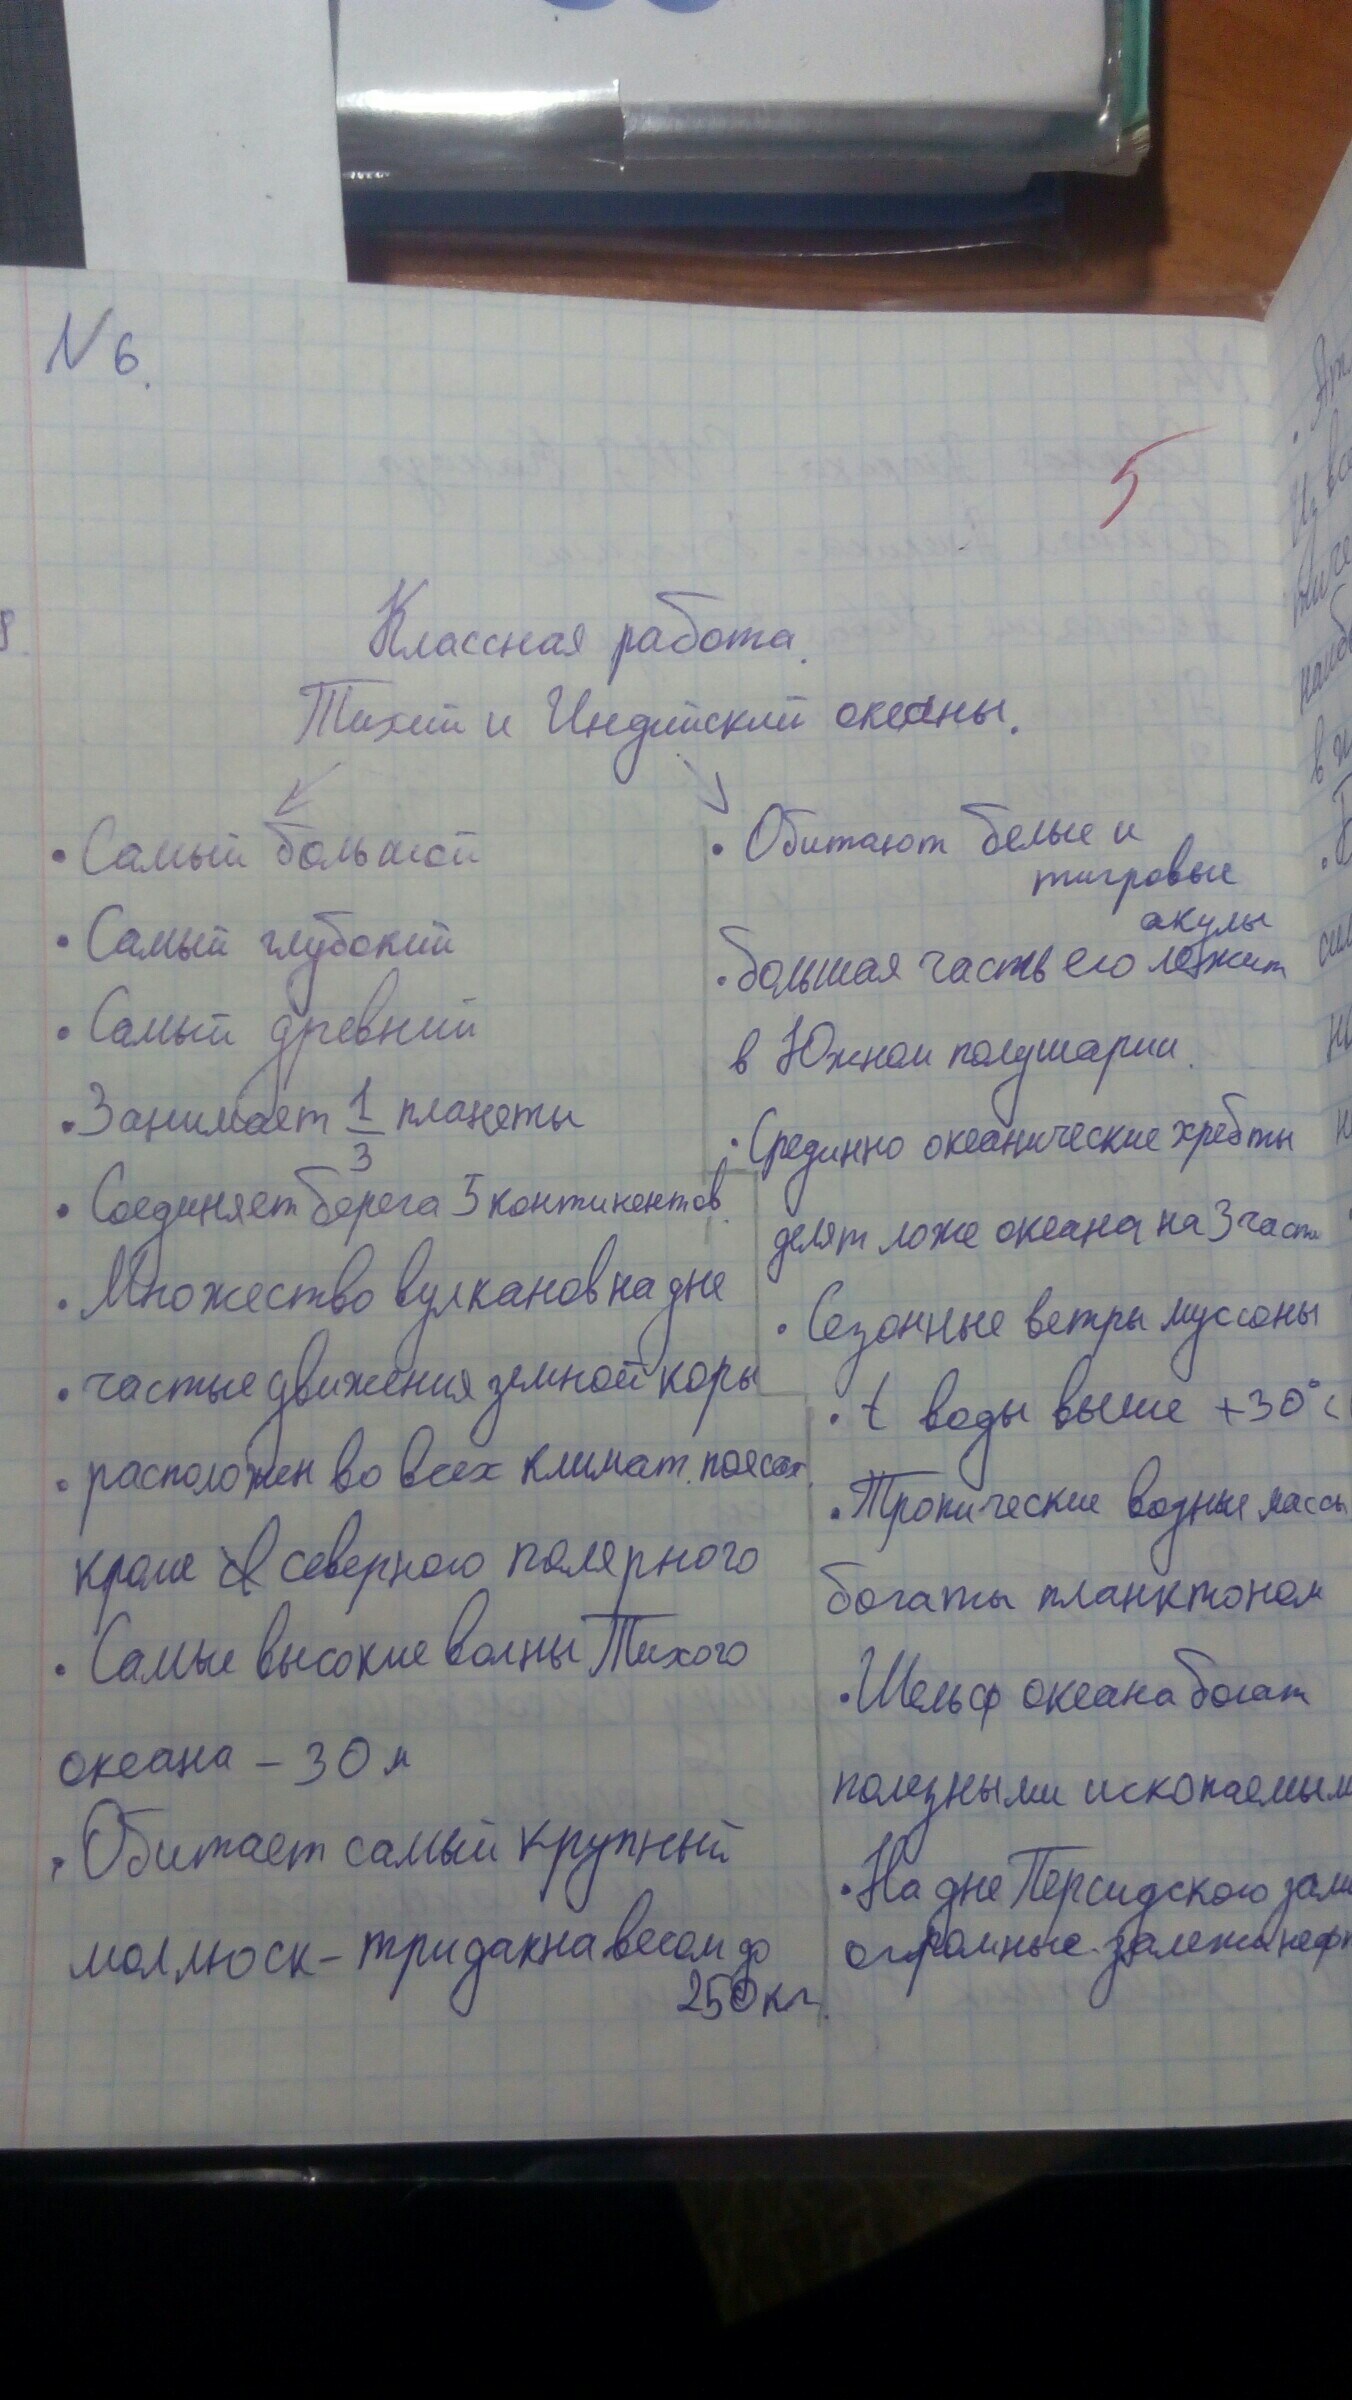 N 6.
5
Классная работа.
Тихий и Индийский океаны.
• Самый большой
• Самый глубокий
• Самый древний
• Занимает 1/3 планеты
• Соединяет берега 5 континентов
• Множество вулканов на дне
• частые движения земной коры
• расположен во всех климат. поясах
кроме северного полярного
• Самые высокие волны Тихого
океана – 30 м
• Обитает самый крупный
моллюск – тридакна весом до
250 кг.
• Обитают белые и
тигровые
акулы
• большая часть его лежит
в Южном полушарии.
• Срединно океанические хребты
делят ложе океана на 3 части
• Сезонные ветры муссоны
• t воды выше +30°C
• Тропические водные массы
богаты планктоном
• Шельф океана богат
полезными ископаемым
• На дне Персидского зали
огромные залежи нефт